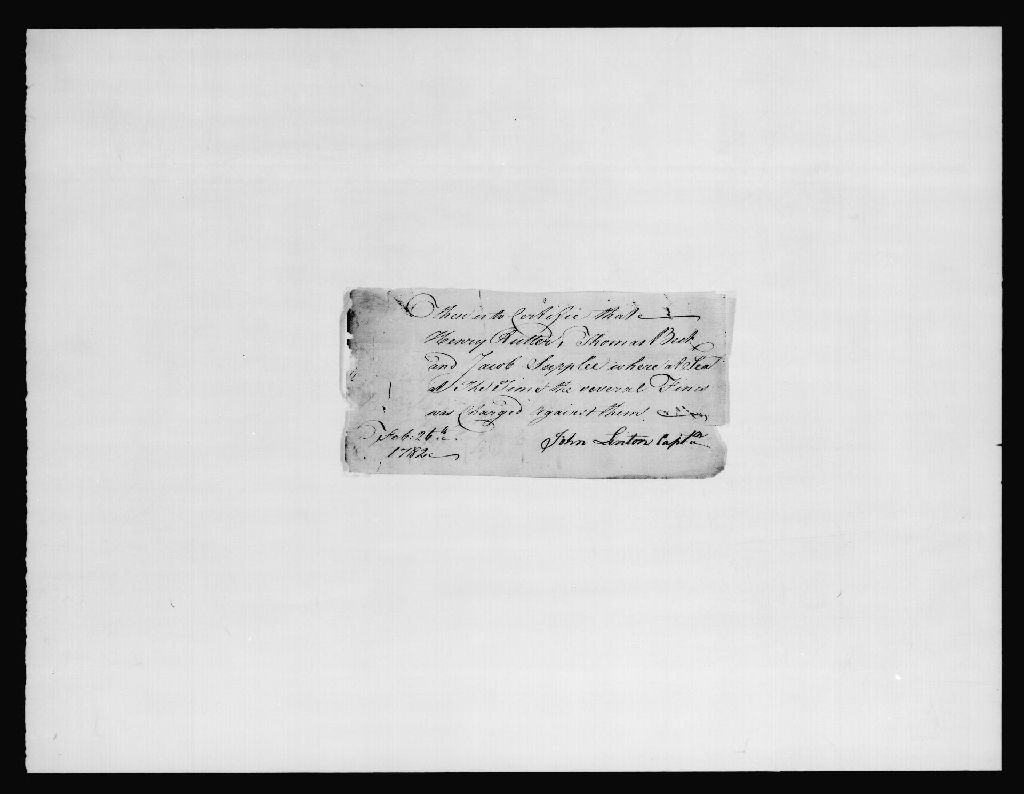 these is to Certifie that
Henry Rutter, Thomas Beck
and Jacob Supplee where at Sea
at The Time the several Fines
was Charged against them
Feb. 26th John Linton Captn
1782